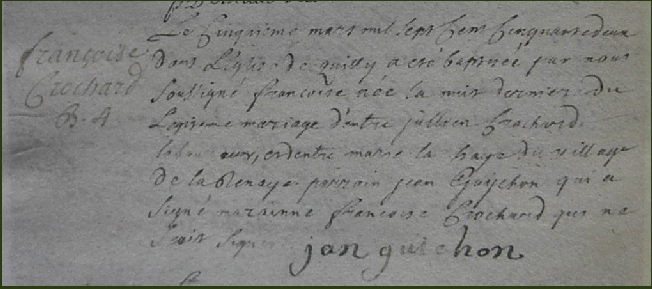 françoise
Crochard
B. 4
Le Cinquisme mars mil sept Cent Cinquante deux
Dans L'église de quilly a eté baptisée par nous
soussigné françoise née la nuit dernier du
Legitisme mariage d'entre jullien Crochard
laboureur, et d'entre marie la haye du village
De la parrain jean Guischon qui a
signé marainne francoise Crochard qui ne
scait signer
jan guischon